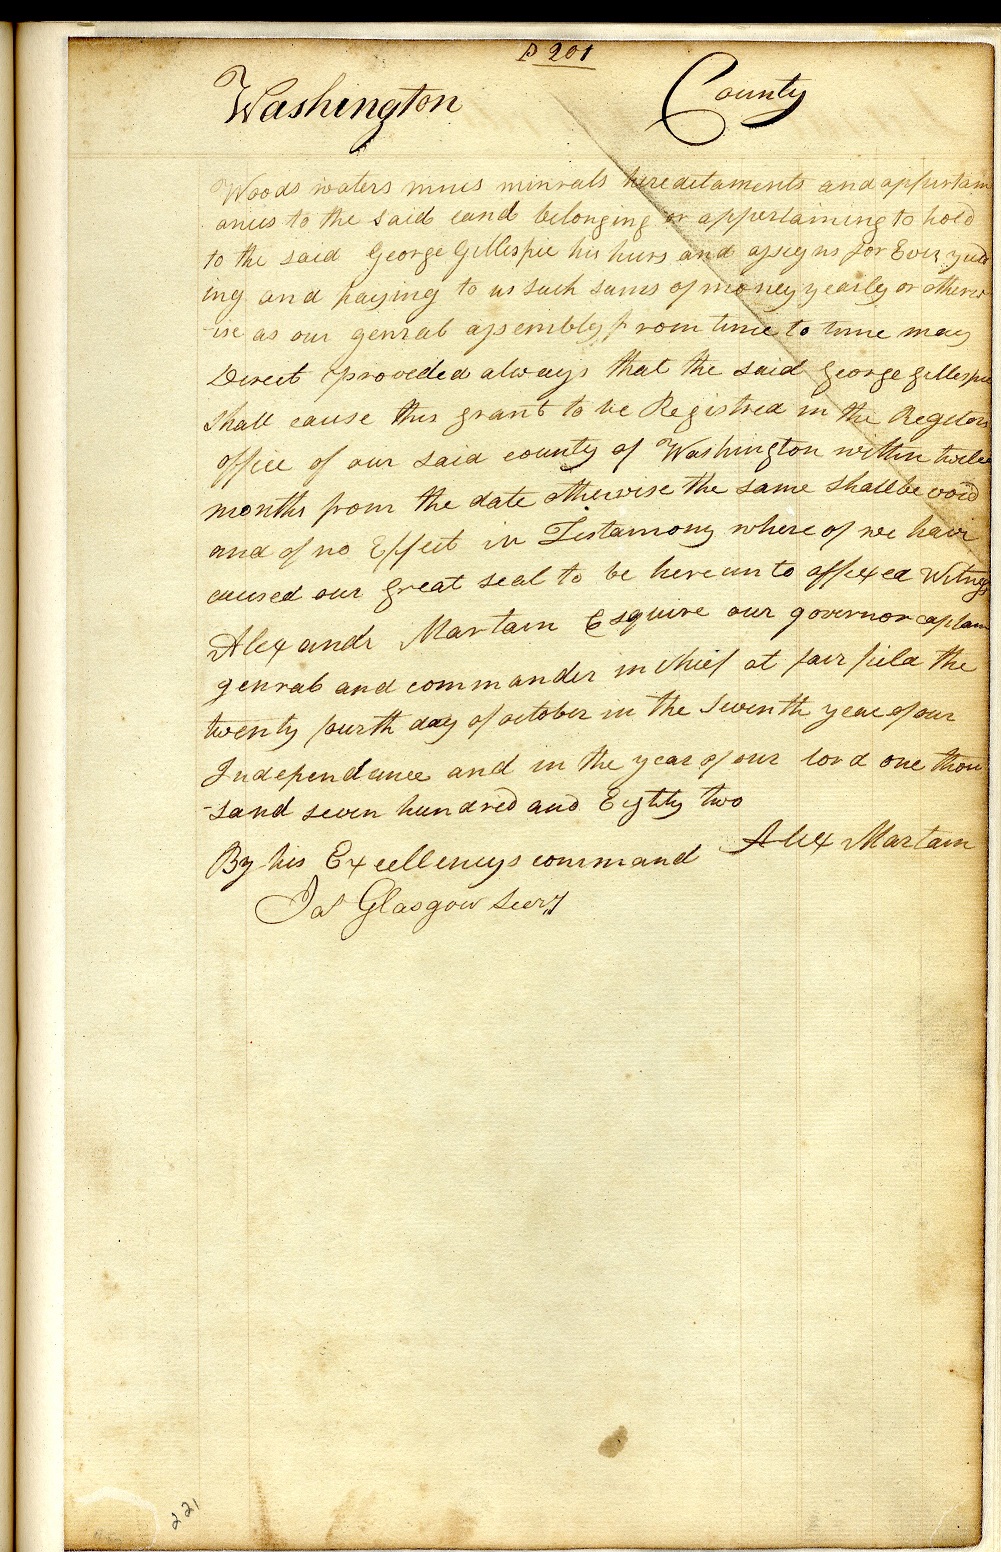 P 201
Washington County
Woods waters mines minrals hereditaments and appurtain
ances to the said land belonging or appertaining to hold
to the said George Gillespie his heirs and assigns for Ever yeild
ing and paying to us such sums of money yearly or otherw
-ise as our genral assembly from time to time may
Direct provided always that the said George Gillespie
shall cause this grant to be Registred in the Registers
office of our said county of Washington within twelve
months from the date otherwise the same shall be void
and of no Effect in Testamony where of we have
caused our great seal to be here unto affixed Witness
Alexandr Martain Esquire our governor captain
genral and commander in chief at fair field the
twenty fourth day of october in the Seventh year of our
Independance and in the year of our lord one thou
-sand seven hundred and Eighty two
By his Excellencys command Alex Martain
Jas Glasgow Secry
221